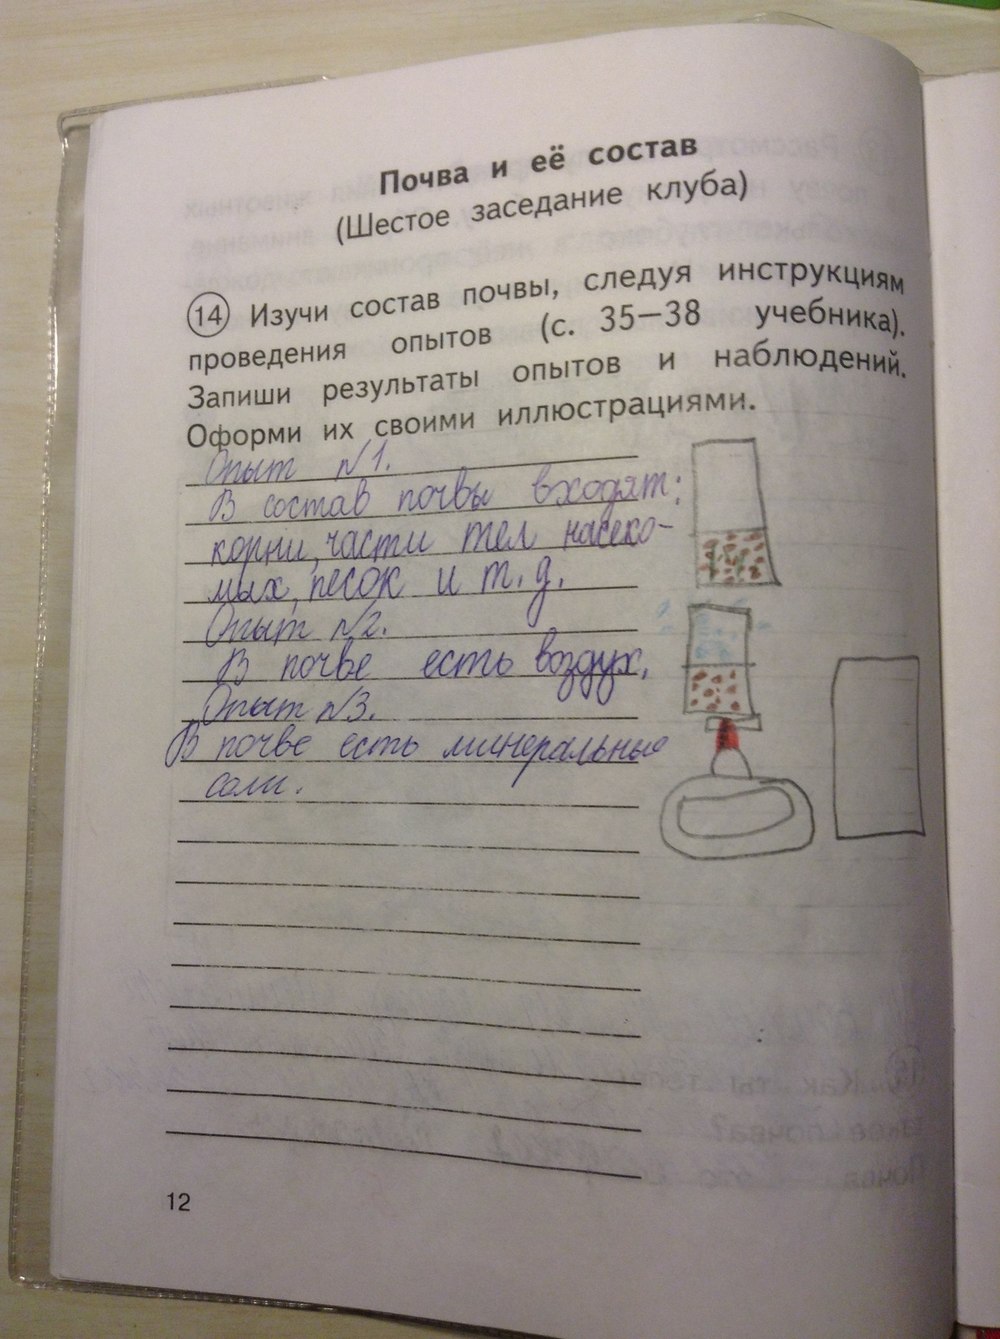 Почва и её состав
(Шестое заседание клуба)
14 Изучи состав почвы, следуя инструкциям
проведения опытов (с. 35—38 учебника).
Запиши результаты опытов и наблюдений.
Оформи их своими иллюстрациями.
Опыт №1.
В состав почвы входят:
корни, части тел насеко-
мых, песок и т. д.
Опыт №2.
В почве есть воздух.
Опыт №3.
В почве есть минеральные
соли.
12